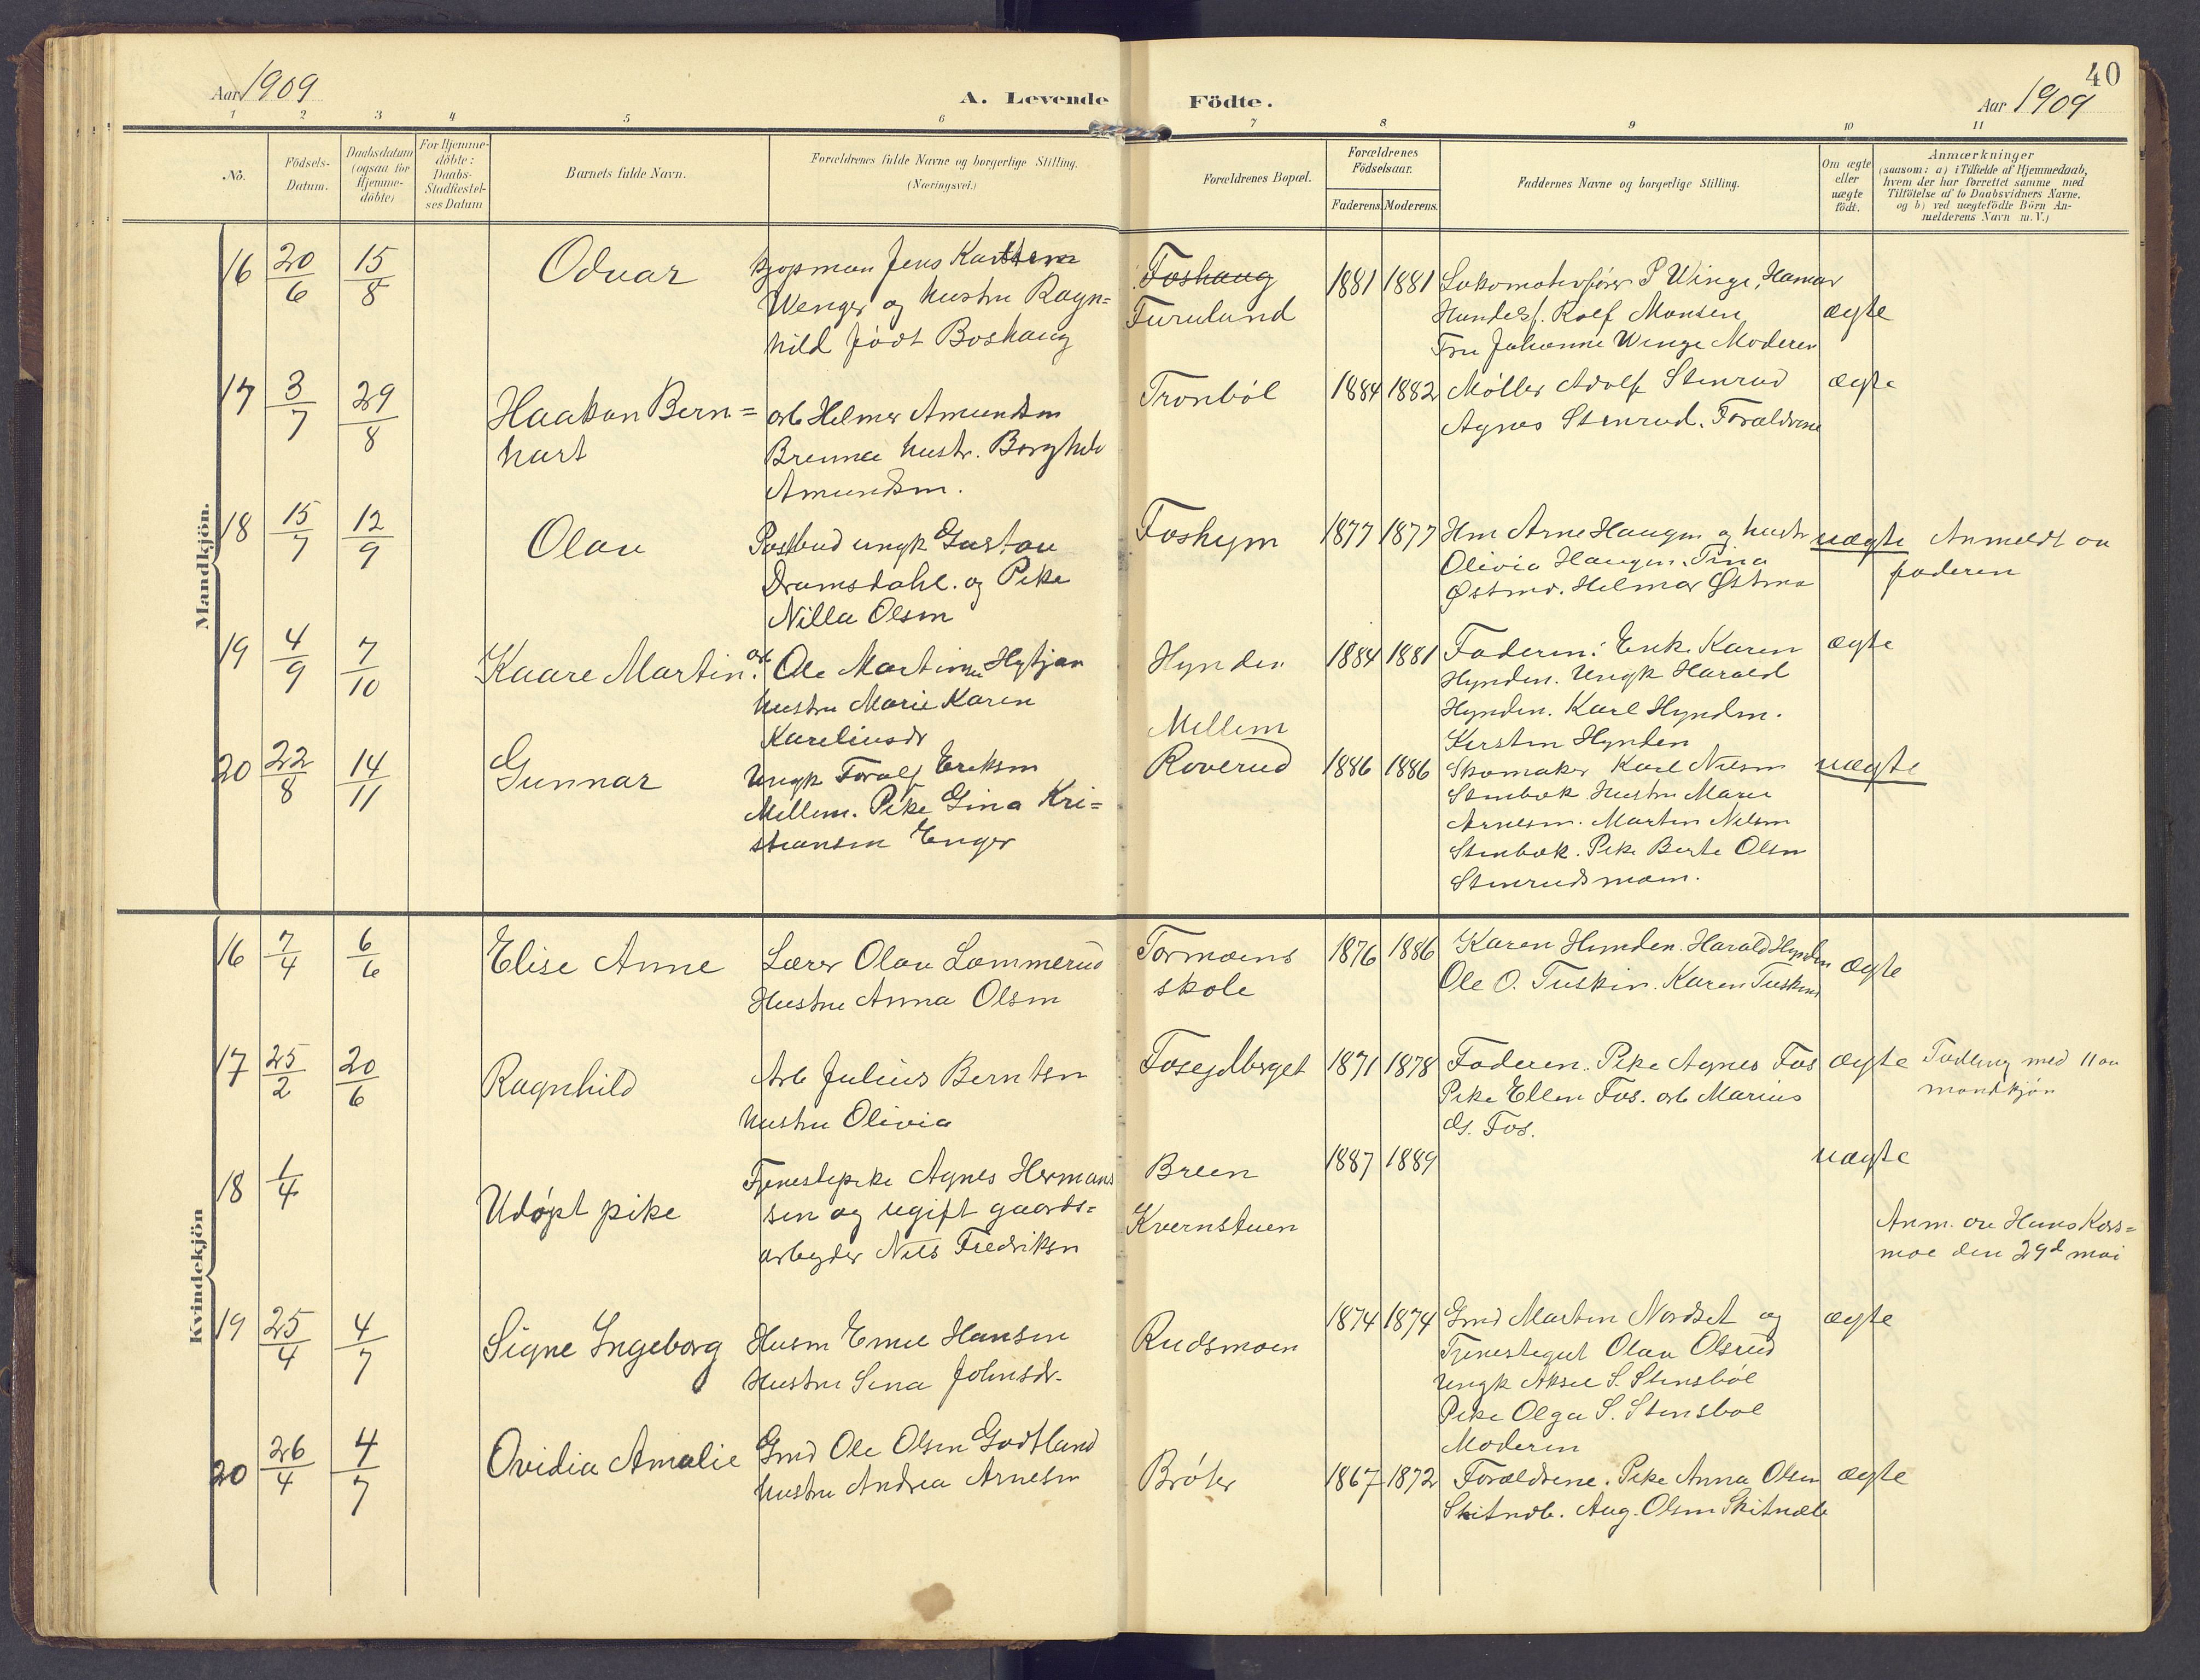 40
Aar 1909
A. Levende Födte.
Aar 1909
1 2 3 4 5 6 7 8 9 10 11
No.
Födsels-
Datum.
Daabsdatum
(ogsaa for
Hjemme-
döbte)
For Hjemme-
döbte:
Daabs-
Stadfæstel-
ses Datum
Barnets fulde Navn.
Forældrenes fulde Navne og borgerlige Stilling.
(Næringsvei.)
Forældrenes Bopæl.
Forældrenes
Födselsaar.
Faderens. Moderens.
Faddernes Navne og borgerlige Stilling.
Om ægte
eller
uægte
födt.
Anmærkninger
(saasom: a) i Tilfælde af Hjemmedaab,
hvem der har forrettet samme med
Tilföielse af to Daabsvidners Navne.
og b) ved uægtefödte Börn An-
melderens Navn m. V.)
Mandkjön.
16 20/6 15/8 Odvar
kjøpman Jens Karsten
Wenger og hustru Ragn=
hild født Boshaug
Foshaug
Furulund
1881 1881
Lokomotivfører P Winge, Hamar
Handelsf. Rolf Monsen
Fru Johanne Winge Moderen
ægte
17 3/7 29/8 Haakon Bern=
hart
arb Helmer Amundsen
Brenna hustr. Borghild
Amundsen.
Tronbøl
1884 1882
Møller Adolf Stenrud
Agnes Stenrud. Forældrene
ægte
18 15/7 12/9 Olav
Postbud ungk Gustav
Dramsdahl. og Pike
Nilla Olsen
Foshejm
1877 1877
Hm Arne Haugen og hustr
Olivia Haugen. Tina
Østmo. Helmar Østmo
uægte
Anmeldt av
faderen
19 4/9 7/10 Kaare Martin.
arb Ole Martinsen Hytjan
hustru Marie Karen
Kareliusdr
Hynden
1884 1881
Faderen: Enk. Karen
Hynden. Ungk Harald
Hynden. Karl Hynden.
Kersten Hynden
ægte
20 22/8 14/11 Gunnar
Ungk Toralf Eriksen
Millem. Pike Gina Kri=
stiansen Enger
Millem
Roverud
1886 1886
Skomaker Karl Nilsen
Stenbæk Hustru Marie
Arnesen. Martin Nilsen
Stenbæk. Pike Berte Olsen
Stenrudsmoen.
uægte
Kvindekjön
16 7/4 6/6 Elise Anne
Lærer Olav Lammerud
Hustru Anna Olsen
Tormoens
skole
1876 1886
Karen Hynden. Harald Hynden
Ole O. Tuskin. Karen Tuskin
ægte
17 25/2 20/6 Ragnhild
Arb Julius Berntsen
hustru Olivia
Fosejdberget
1871 1878
Faderen. Pike Agnes Fos
Pike Ellen Fos. arb Marius
ds. Fos.
ægte
Tvilling med 11 av
mandkjøn
18 1/4 Udøpt pike
Tjenestepike Agnes Hermans
sen og ugift gaards=
arbejder Nils Fredriksen
Breen
Kvernstuen
1887 1889
uægte
Anm. av Hans Kors=
moe den 29d mai
19 25/4 4/7 Signe Ingeborg
Husm Emil Hansen
Hustru Lina Johnsdr.
Rudsmoen
1874 1874
Gmd Martin Nordset og
Tjenestegut Olav Olsrud
Ungk Aksel S. Stensbøl
Pike Olga S. Stensbøl
Moderen
ægte
20 26/4 4/7 Ovidia Amalie
Gmd Ole Olsen Godtland
hustru Andrea Arnesen
Brøter
1867 1872
Forældrene. Pike Anna Olsen
Skitndb. Aug. Olsen Skitndb
ægte